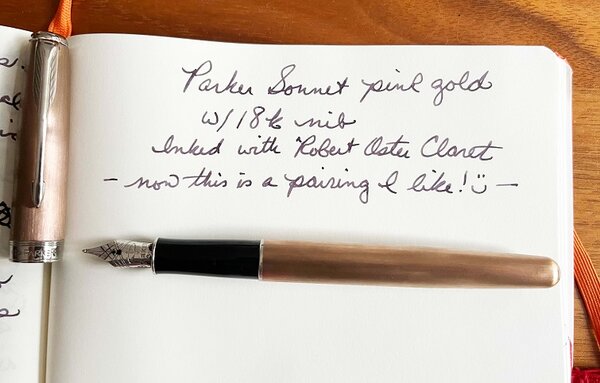 Parker Sonnet pink gold
w/18k nib
Inked with Robert Oster Claret
- now this is a pairing I like! ☺ -